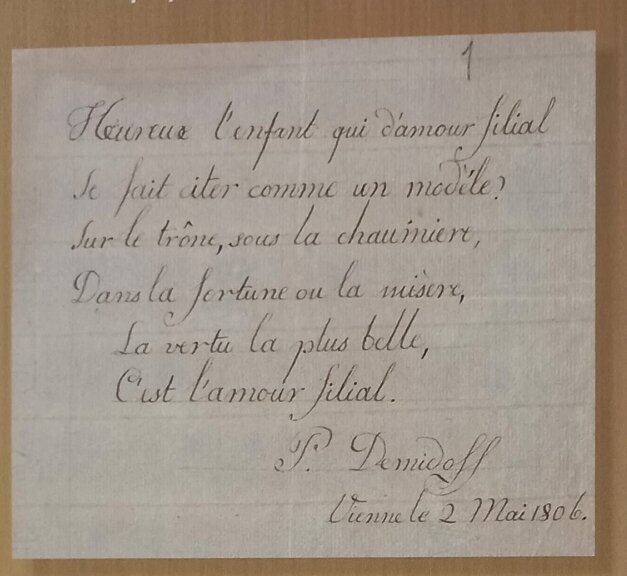 1
Heureux l'enfant qui d'amour filial
Se fait citer comme un modèle?
Sur le trône, sous la chaumiere,
Dans la fortune ou la misère,
La vertu la plus belle,
C'est l'amour filial.
P. Demidoff
Vienne le 2 Mai 1806.